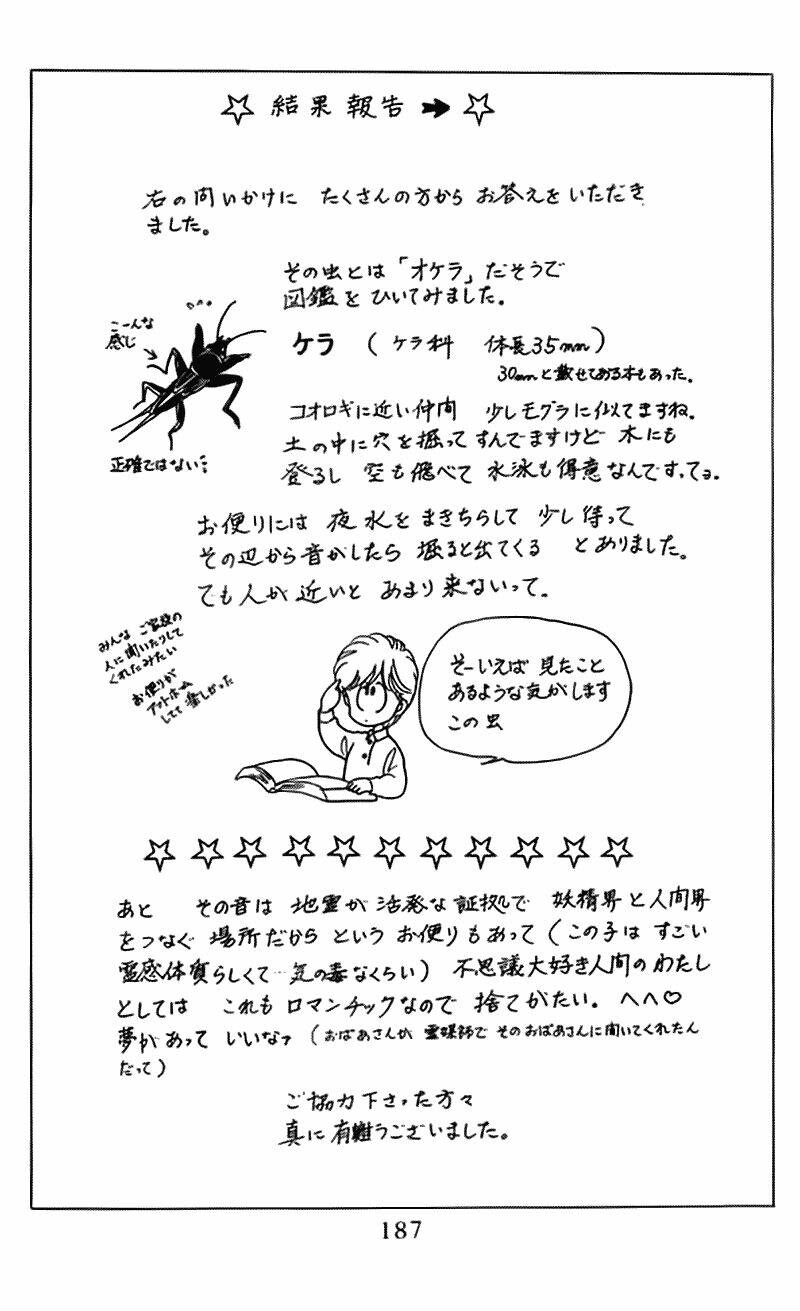 ☆ 結果報告 → ☆
右の問いかけに たくさんの方から お答えをいただき
ました。
その虫とは「オケラ」だそうで
図鑑を ひいてみました。
こーんな
感じ
正確ではない
ケラ ( ケラ科 体長35mm )
30mmと載せてある本もあった。
コオロギに近い仲間 少しモグラに似てますね。
土の中に穴を掘ってすんでますけど 木にも
登るし 空も飛べて 水泳も得意なんですってョ。
お便りには 夜 水を まきちらして 少し待って
その辺から音がしたら 掘ると出てくる とありました。
でも人が近いと あまり来ないって。
みんな ご家族の
人に聞いたりして
くれたみたい
お便りが
アットホーム
してて 楽しかった
そーいえば 見たこと
あるような気がします
この虫
☆ ☆ ☆ ☆ ☆ ☆ ☆ ☆ ☆ ☆ ☆
あと その音は 地霊が 活発な証拠で 妖精界と人間界
をつなぐ 場所だから という お便りもあって ( この子は すごい
霊感体質らしくて…気の毒なくらい ) 不思議大好き人間のわたし
としては これも ロマンチックなので 捨てがたい。 ヘヘ♡
夢があって いいなァ ( おばあさんが 霊媒師で そのおばあさんに聞いてくれたん
だって )
ご協力下さった方々
真に有難うございました。
187